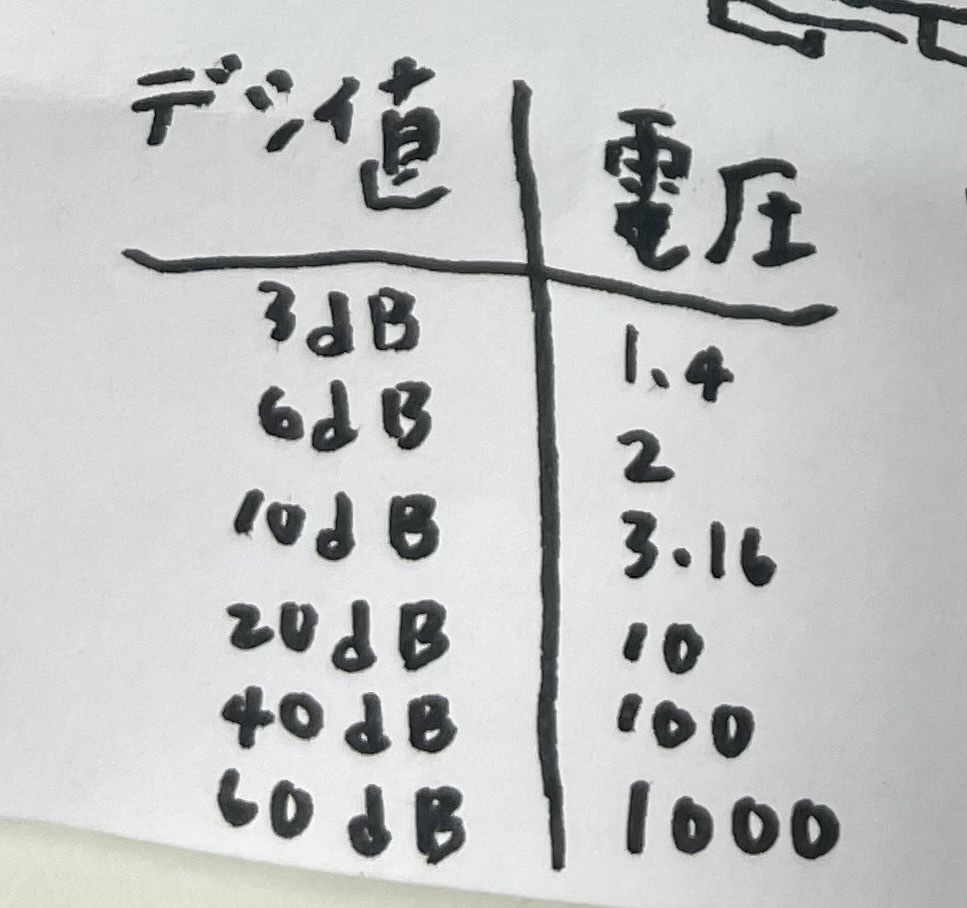 デシ値 電圧
3dB 1.4
6dB 2
10dB 3.16
20dB 10
40dB 100
60dB 1000